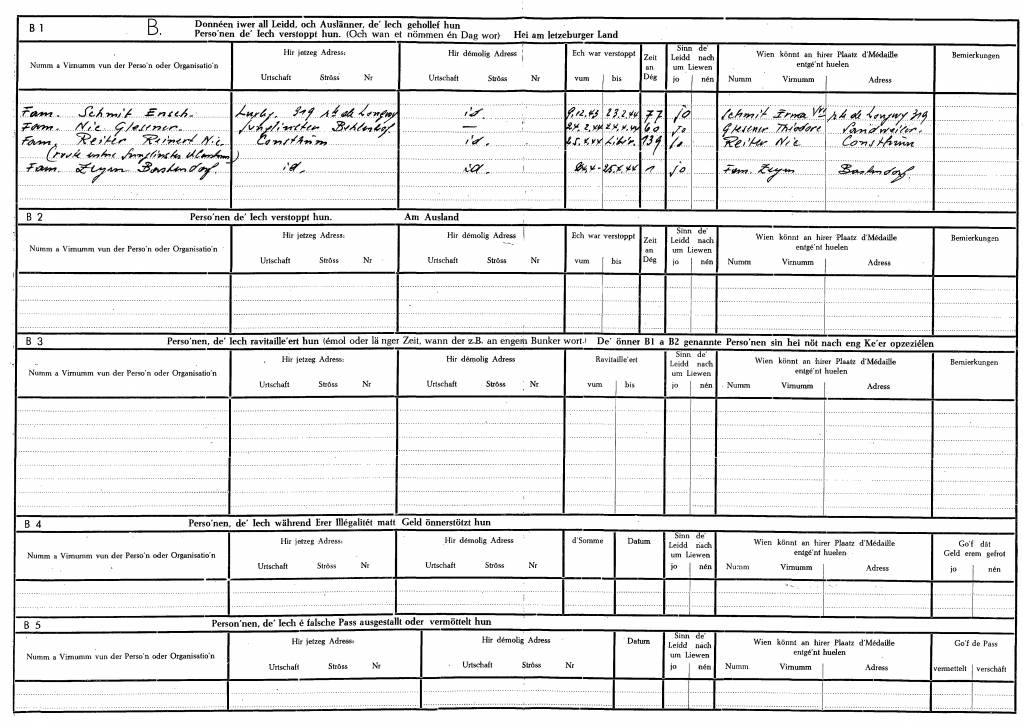 B 1 B. Donnéen iwer all Leidd, och Auslänner, de' Iech gehollef hun
Perso'nen de' Iech verstoppt hun. (Och wan et nömmen én Dag wor) Hei am letzeburger Land
Numm a Virnumm vun der Perso'n oder Organisatio'n
Hir jetzeg Adress:
Urtschaft Ströss Nr
Hir démolig Adress
Urtschaft Ströss Nr
Ech war verstoppt
vum bis
Zeit an Dég
Sinn de' Leidd nach um Liewen
jo nén
Wien könnt an hirer Plaatz d'Médaille entgé'nt huelen
Numm Virnumm Adress
Bemierkungen
Fam. Schmit Ensch. Luxbg. 319 rte de Longwy id. 9.12.43 23.2.44 77 jo Schmit Irma Vve rte de Longwy 319
Fam. Nic Glesener. Junglinster — 24.2.44 24.4.44 60 jo Glesener Thiodore Sandweiler.
Fam. Reiter Reinert Nic Consthum id. 25.4.44 Libér. 139 jo Reiter Nic Consthum
Fam. Zeym Bastendorf. id. id. 24.4- 25.4.44 1 jo Fam. Zeym Bastendorf.
B 2 Perso'nen de' Iech verstoppt hun. Am Ausland
Numm a Virnumm vun der Perso'n oder Organisatio'n
Hir jetzeg Adress:
Urtschaft Ströss Nr
Hir démolig Adress
Urtschaft Ströss Nr
Ech war verstoppt
vum bis
Zeit an Dég
Sinn de' Leidd nach um Liewen
jo nén
Wien könnt an hirer Plaatz d'Médaille entgé'nt huelen
Numm Virnumm Adress
Bemierkungen
B 3 Perso'nen, de' Iech ravitaille'ert hun (émol oder lä nger Zeit, wann der z.B. an engem Bunker wort.) De' önner B1 a B2 genannte Perso'nen sin hei nöt nach eng Ke'er opzeziélen
Numm a Virnumm vun der Perso'n oder Organisatio'n
Hir jetzeg Adress:
Urtschaft Ströss Nr
Hir démolig Adress
Urtschaft Ströss Nr
Ravitaille'ert
vum bis
Sinn de' Leidd nach um Liewen
jo nén
Wien könnt an hirer Plaatz d'Médaille entgé'nt huelen
Numm Virnumm Adress
Bemierkungen
B 4 Perso'nen, de' Iech während Erer Illégalitét matt Geld önnerstötzt hun
Numm a Virnumm vun der Perso'n oder Organisatio'n
Hir jetzeg Adress:
Urtschaft Ströss Nr
Hir démolig Adress
Urtschaft Ströss Nr
d'Somme
Datum
Sinn de' Leidd nach um Liewen
jo nén
Wien könnt an hirer Plaatz d'Médaille entgé'nt huelen
Numm Virnumm Adress
Go'f dát Geld erem gefrot
jo nén
B 5 Person'nen, de' Iech é falsche Pass ausgestallt oder vermöttelt hun
Numm a Virnumm vun der Perso'n oder Organisatio'n
Hir jetzeg Adress:
Urtschaft Ströss Nr
Hir démolig Adress:
Urtschaft Ströss Nr
Datum
Sinn de' Leidd nach um Liewen
jo nén
Wien könnt an hirer Plaatz d'Médaille entgé'nt huelen
Numm Virnumm Adress
Go'f de Pass
vermettelt verschäft